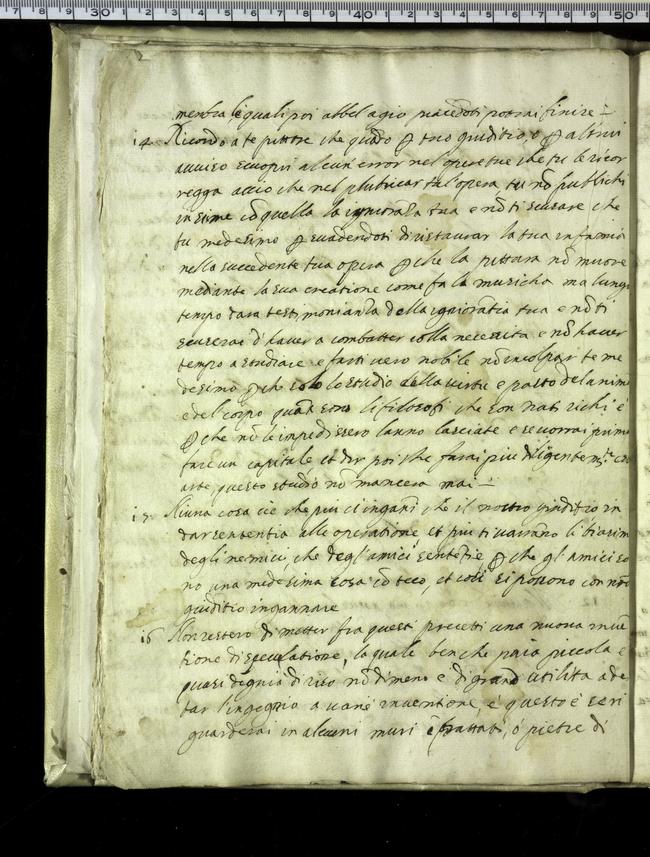 membra le quali poi abbel agio piacendoti potrai finire
14 Ricordo a te pittore che quãdo ꝑ tuo giuditio, o ꝑ altrui
avviso scuopri alcun error nel opere tue che tu le ricor
regga accio che nel plubicar tal'opera tu nõ publichi
insieme cõ quella la ignioranza tua e nõ ti scusare che
tu medesimo ꝑsuadendoti di restaurar la tua infamia
nella succedente tua opera ꝑche la pittura nõ muore
mediante la sua creatione come fa la musicha ma lungo
tempo dara testimonianza della ignioratia tua e nõ ti
scuserai d'haver a combatter colla necessita e nõ haver
tempo a studiare e farti vero nobile nõ incolpar te me
desimo ꝑche solo lo studio della virtu e pasto del anima
e del corpo quãti sono li filosofi che son nati richi e
ꝑche nõ l'impedissero lanno lasciate e se vorrai prima
fare un capitale et dir poi che farai piu diligentemẽte
arte, questo studio nõ mancera mai
15 Niuna cosa cie che piu ci ingañi che il nostro giuditio in
dar sententia alle operatione, et piu ti varrãno li biasimi
degli nemici, che degl'amici sentẽtie ꝑche gl'amici so
no una medesima cosa cõ teco, et cosi si possono con nr̃o
giuditio ingannare
16 Non restero di metter fra questi precetti una nuova invẽ
tione di speculatione, la quale benche paia piccola e
quasi degnia di riso nõ dimeno e di grand utilita a de
tar l'ingegnio a varie inventione, e questo è se ri
guarderai in alcuni muri ĩbrattati, o pietre di